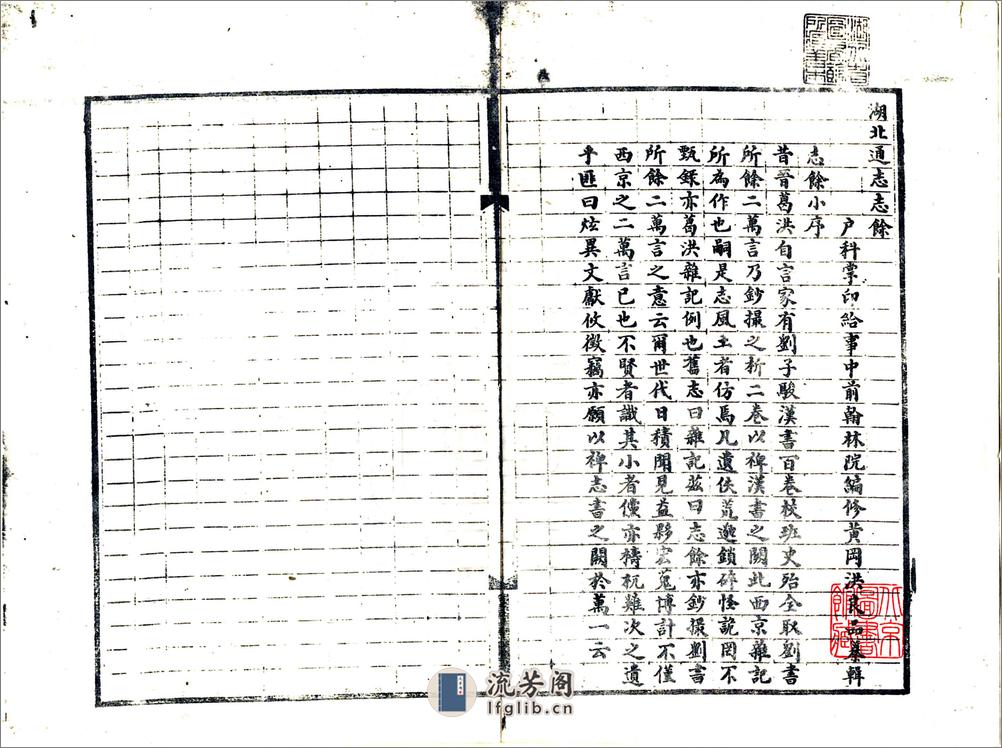 湖北通志志餘
戶科掌印給事中前翰林院編修黃岡洪良品纂輯
志餘小序
昔晉葛洪自言家有劉子駿漢書百卷校班史殆全取劉書
所餘二萬言乃鈔撮之析二卷以裨漢書之闕此西京雜記
所為作也嗣是志風土者仿焉凡遺佚荒邈鎖碎怪詭罔不
甄錄亦葛洪雜記例也舊志曰雜記茲曰志餘亦鈔撮劉書
所餘二萬言之意云爾世代日積聞見益夥宏蒐博計不僅
西京之二萬言已也不賢者識其小者儻亦檮杌雜次之遺
乎匪曰炫異文獻攸徵竊亦願以裨志書之闕於萬一云
流芳阁
lfglib.cn